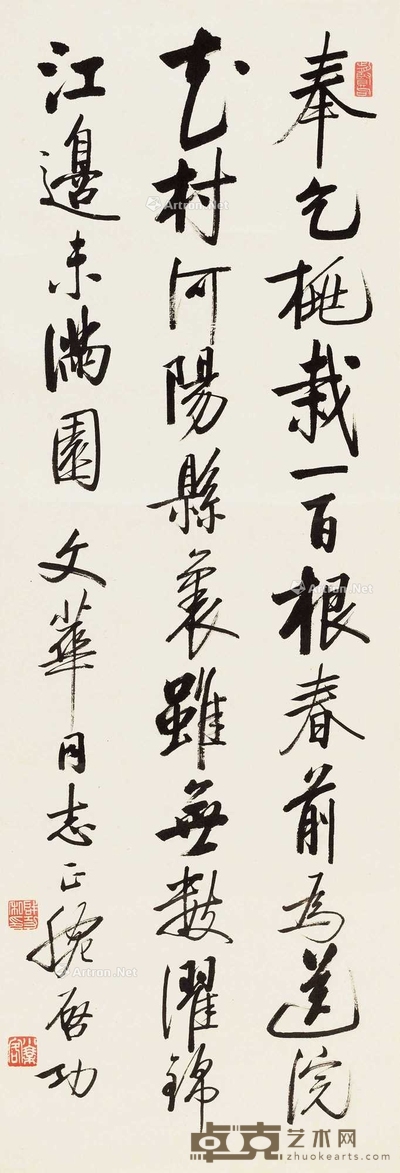 奉乞桃栽一百根春前為送浣
花村河陽縣裏雖無數濯錦
江邊未滿園 文華同志正腕 启功
Artron.Net
Artron.Net
Artron.Net
Artron.Net
卓克艺术网
zhuokearts.com